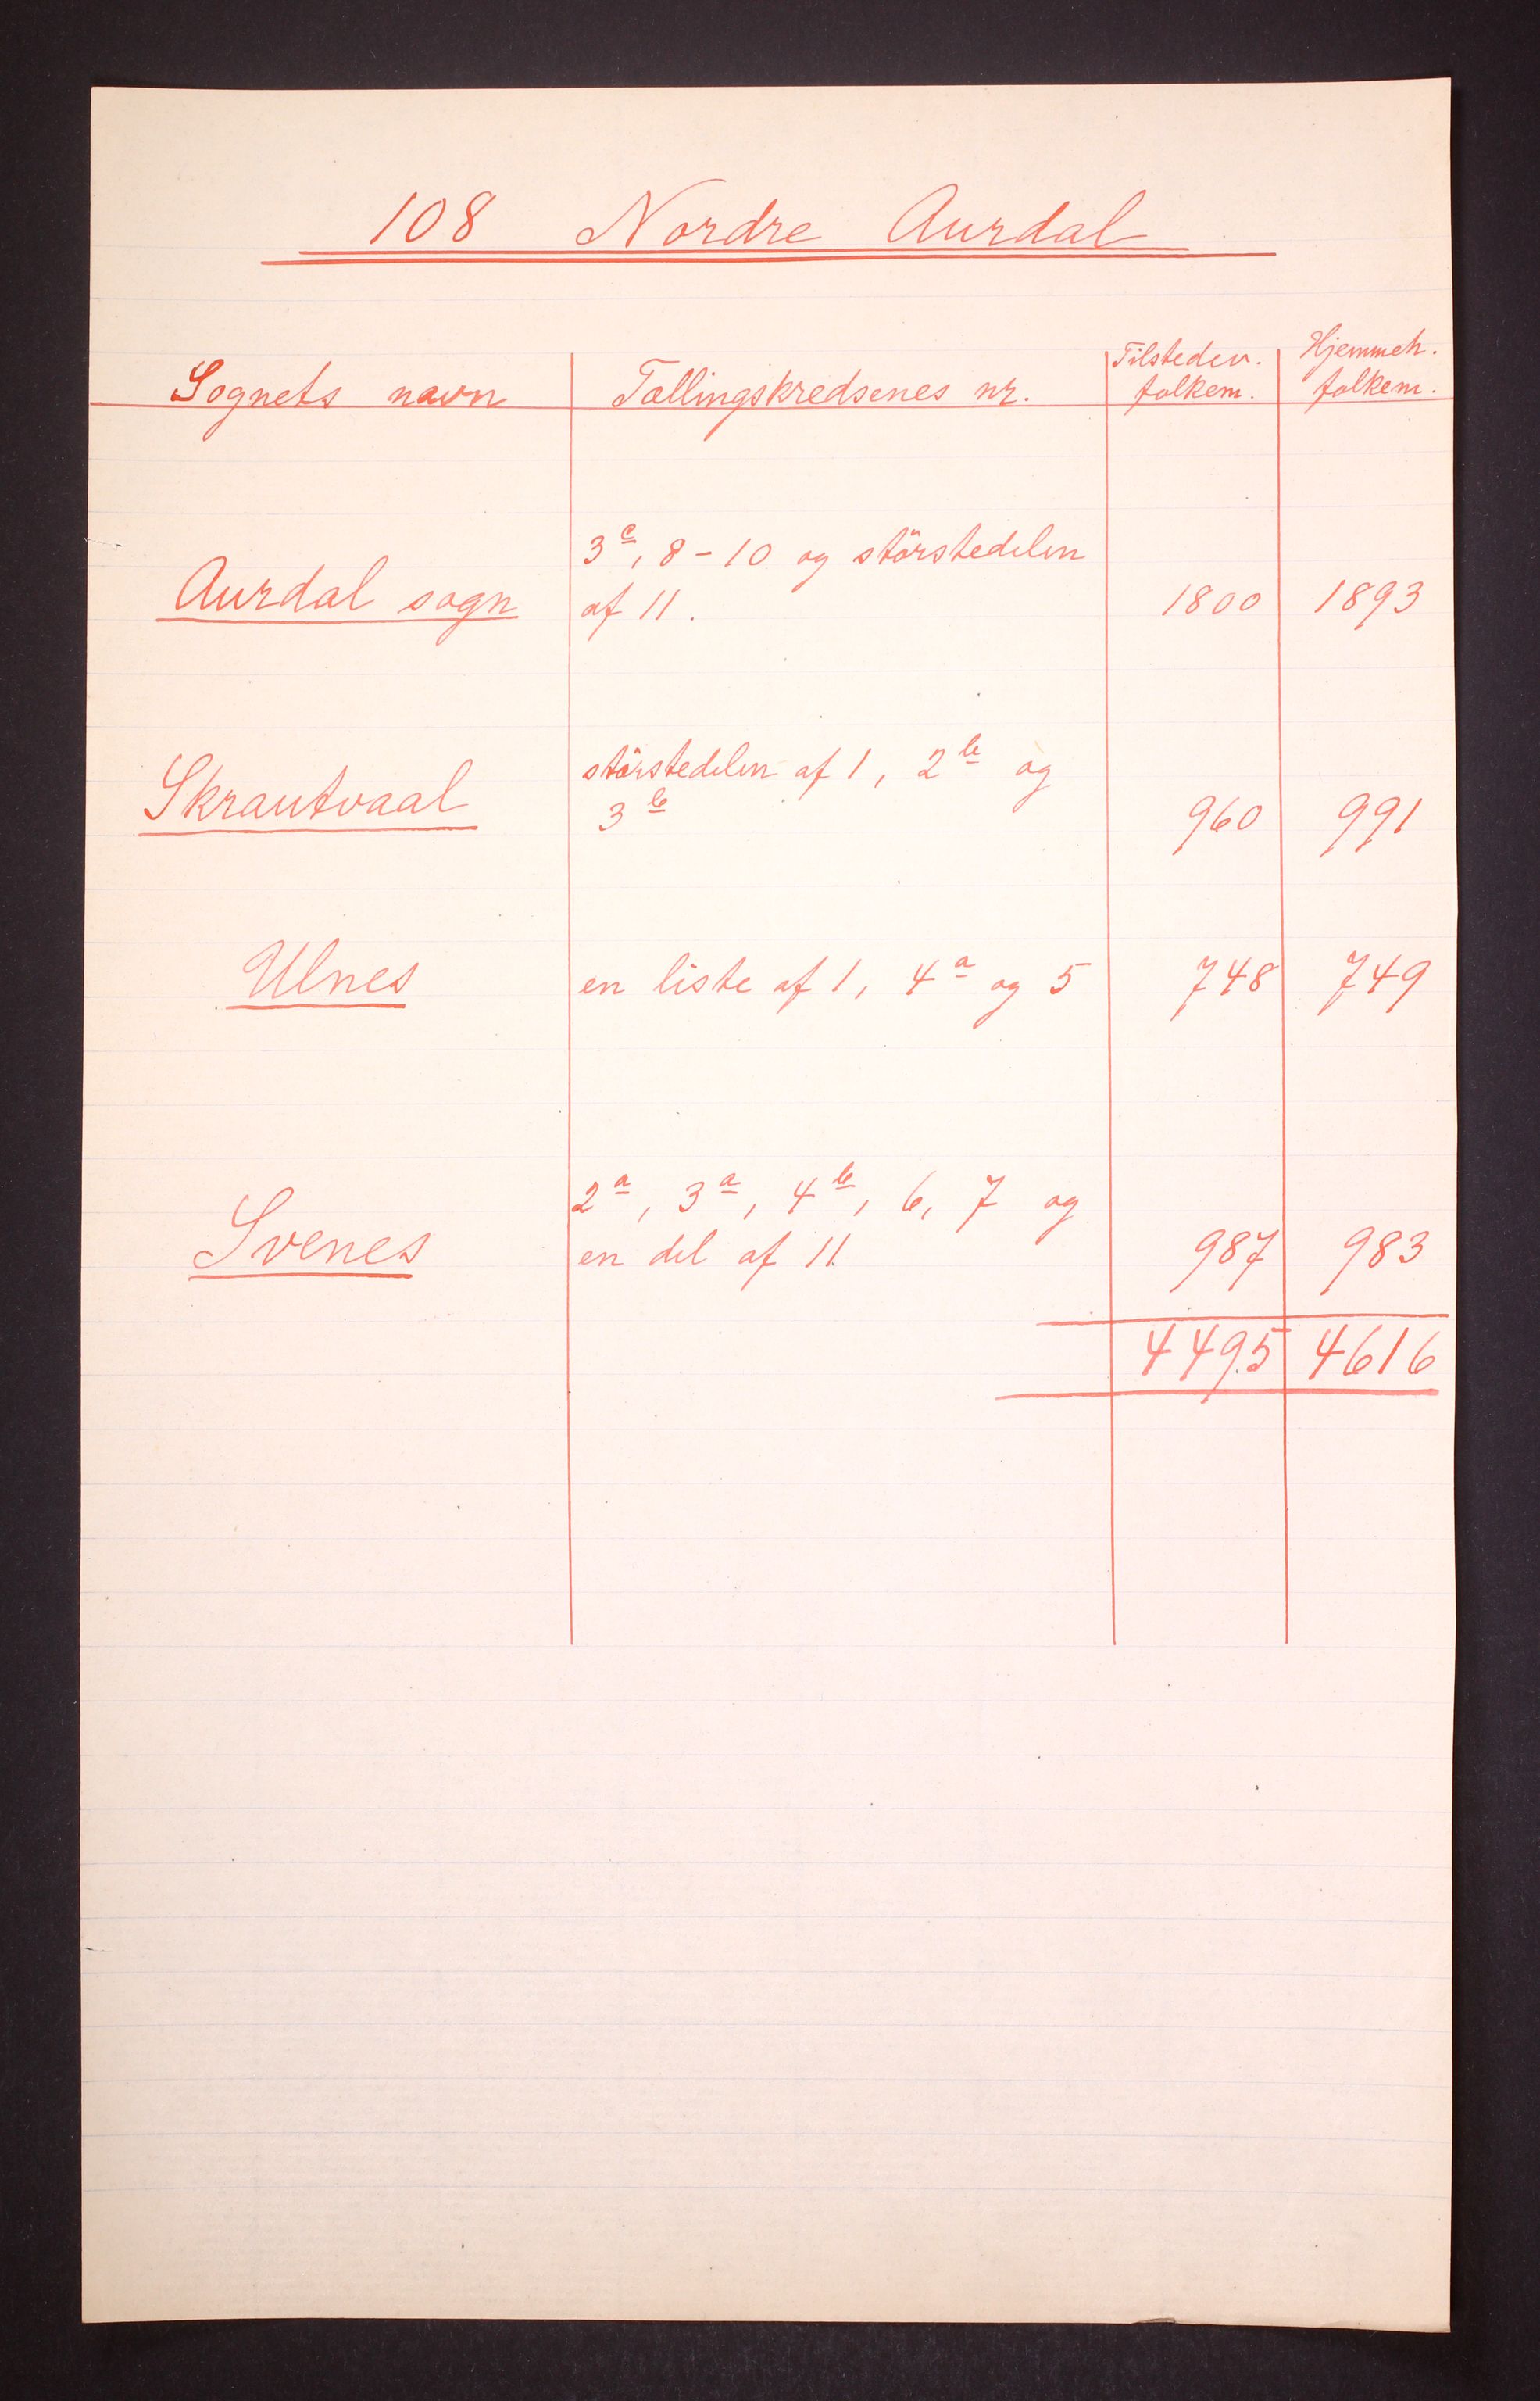 108 Nordre Aurdal
Sognets navn Tællingskredsenes nr. Tilstedev. folkem. Hjemmeh. folkem.
3c, 8-10 og störstedelen
Aurdal sogn af 11. 1800 1893
störstedelen af 1, 2b og
Skrautvaal 3b 960 991
Ulnes en liste af 1, 4a og 5 748 749
2a, 3a, 4b, 6, 7 og
Svenes en del af 11. 987 983
4495 4616